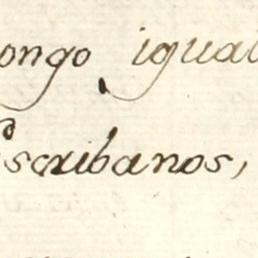 ongo igual
Escribanos,